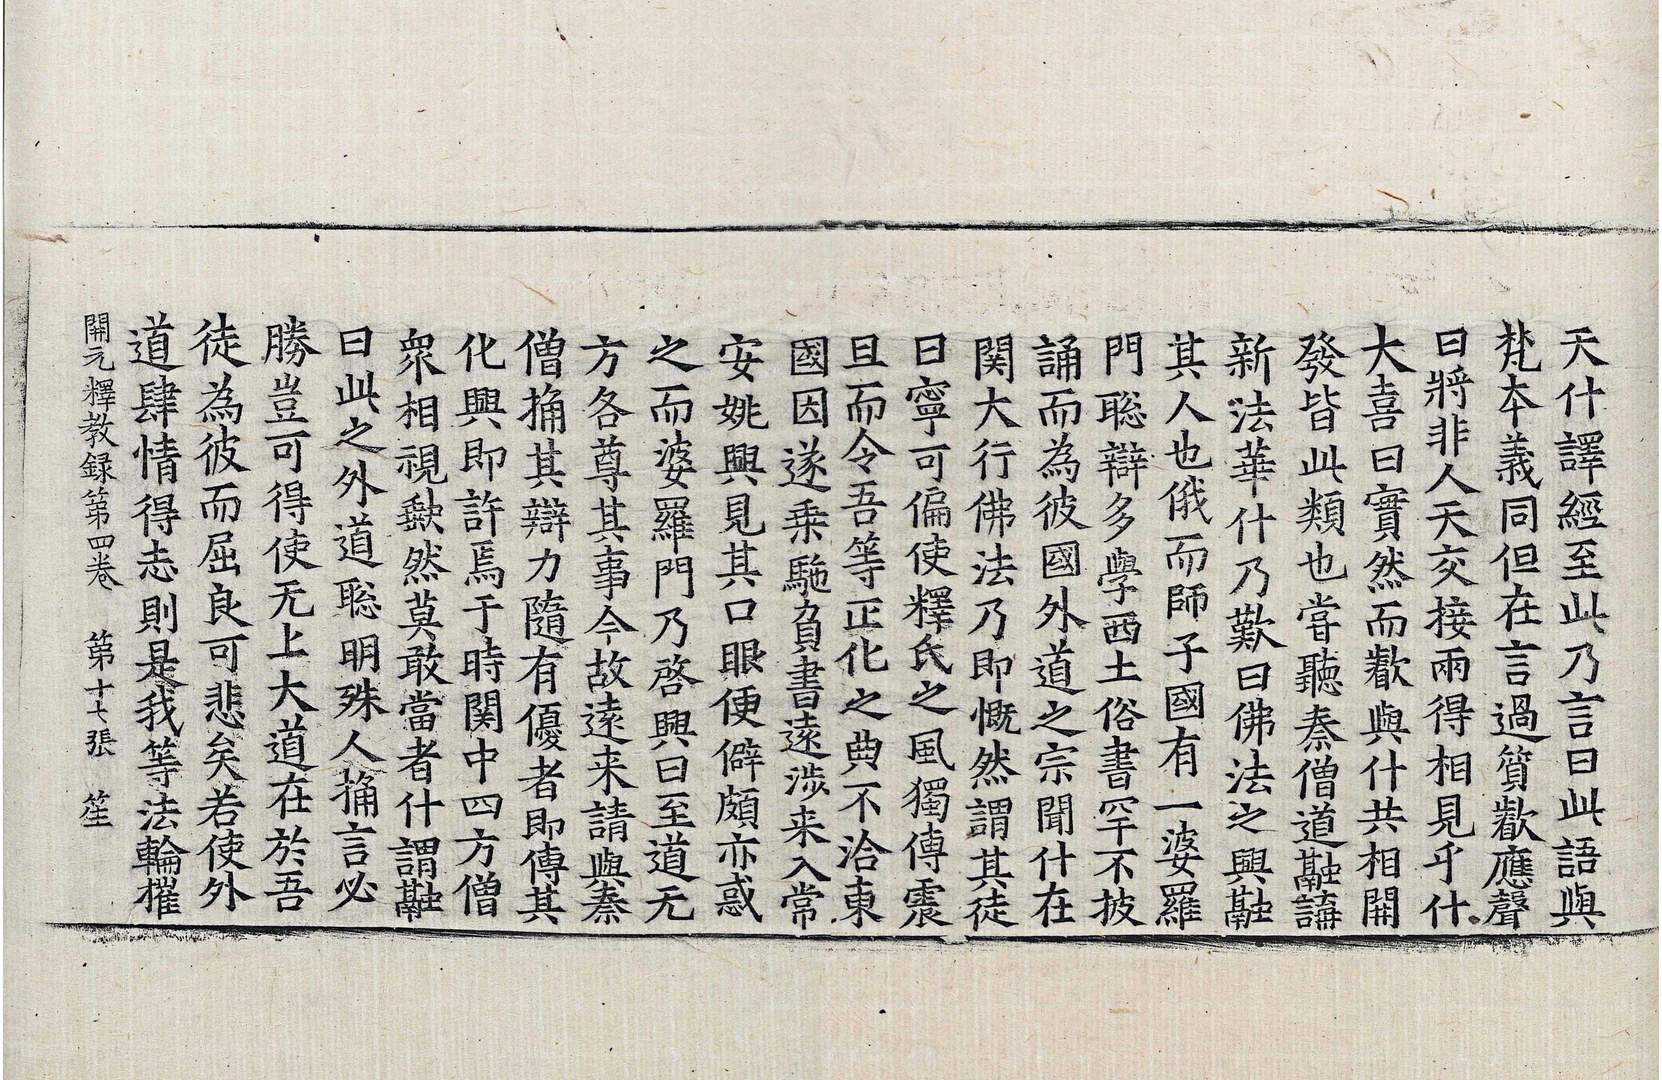 天什譯經至此乃言曰此語與
梵本義同但在言過質歡應聲
曰將非人天交接兩得相見乎什
大喜曰實然而歡與什共相開
發皆此類也嘗聽泰僧道融講
新法華什乃歎曰佛法之興融
其人也俄而師子國有一婆羅
門聡辯多學西土俗書罕不披
誦而為彼國外道之宗聞什在
関大行佛法乃即慨然謂其徒
曰寧可偏使釋氏之風獨傳震
旦而令吾等正化之典不洽東
國因遂乗駞負書遠涉来入常
安姚興見其口眼便僻頗亦惑
之而婆羅門乃啓興曰至道无
方各尊其事今故遠来請與秦
僧捔其辯力隨有優者即傳其
化興即許焉于時関中四方僧
衆相視歇然莫敢當者什謂融
曰此之外道聡明殊人捔言必
勝豈可得使无上大道在於吾
徒為彼而屈良可悲矣若使外
道肆情得志則是我等法輪摧
開元釋教録第四卷 第十七張 笙